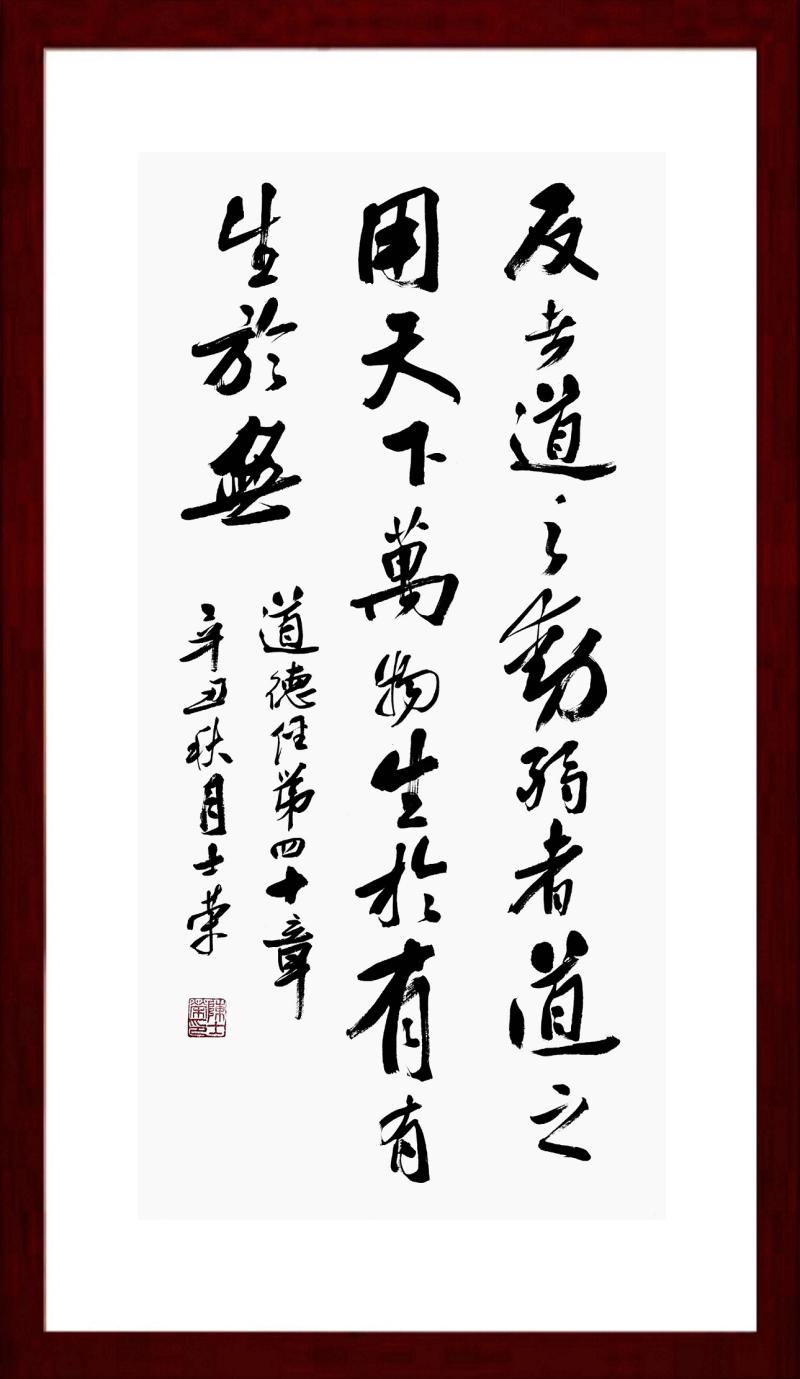 反者道之動弱者道之
用天下萬物生於有有
生於無
道德經第四十章
辛丑秋月士榮
陳士榮印